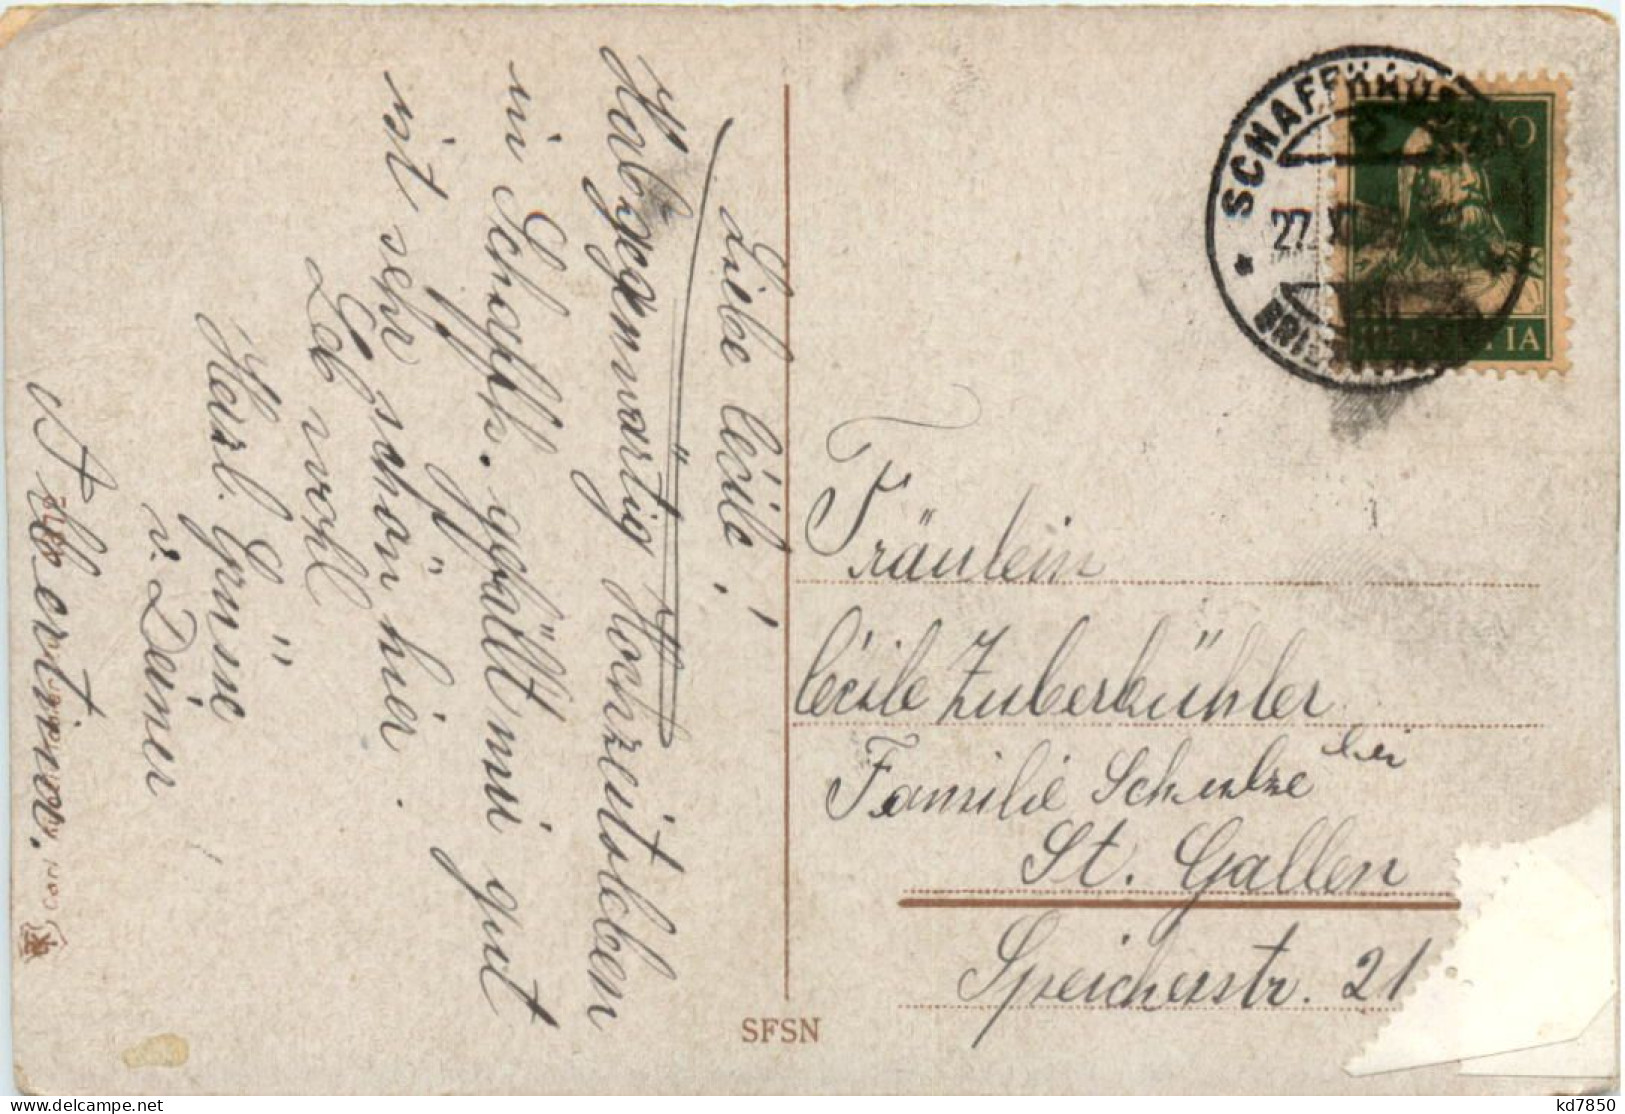 Liebe Cécile!
Hab gegenwärtig Hochzeitsleben
in Schaffh. gefällt mir gut
ist sehr schön hier.
Leb wohl
Herzl. Grüsse
v. Deiner
Albertina.
SCHAFFHAUSEN
27. XI.
10
HELVETIA
Fräulein
Cécile Zuberbühler
bei
Familie Schulze
St. Gallen
Speicherstr. 21
SFSN
kd7850